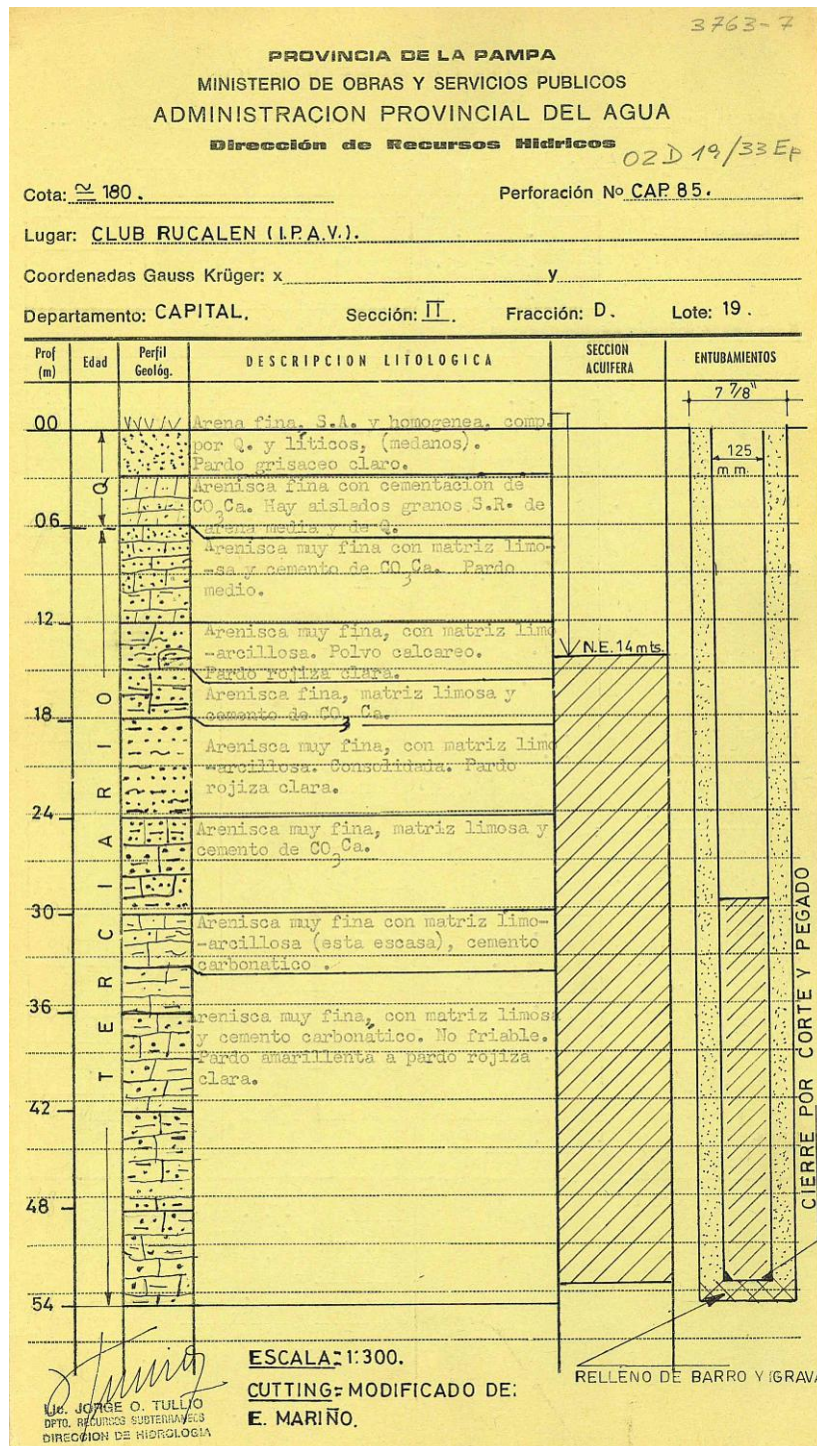 3763-7
PROVINCIA DE LA PAMPA
MINISTERIO DE OBRAS Y SERVICIOS PUBLICOS
ADMINISTRACION PROVINCIAL DEL AGUA
Dirección de Recursos Hídricos
02D 19/33 Ep
Cota: ≃ 180. Perforación Nº CAP. 85.
Lugar: CLUB RUCALEN (I.P.A.V.).
Coordenadas Gauss Krüger: x y
Departamento: CAPITAL. Sección: II. Fracción: D. Lote: 19.
Prof (m) Edad Perfil Geológ. DESCRIPCION LITOLOGICA SECCION ACUIFERA ENTUBAMIENTOS
7 7/8"
00
Arena fina, S.A. y homogenea, comp.
por Q. y líticos, (medanos).
Pardo grisaceo claro.
125
m.m.
Q
Arenisca fina con cementación de
CO3Ca. Hay aislados granos S.R. de
arena media y de Q.
06
Arenisca muy fina con matriz limo-
-sa y cemento de CO3Ca. Pardo
medio.
12
Arenisca muy fina, con matriz limo
-arcillosa. Polvo calcareo.
Pardo rojiza clara.
N.E. 14 mts.
Arenisca fina, matriz limosa y
cemento de CO3 Ca.
18
Arenisca muy fina, con matriz limo
-arcillosa. Consolidada. Pardo
rojiza clara.
24
Arenisca muy fina, matriz limosa y
cemento de CO3Ca.
30
Arenisca muy fina con matriz limo-
-arcillosa (esta escasa), cemento
carbonatico .
36
Arenisca muy fina, con matriz limosa
y cemento carbonático. No friable.
Pardo amarillenta a pardo rojiza
clara.
42
48
54
TERCIARIO
CIERRE POR CORTE Y PEGADO
RELLENO DE BARRO Y GRAVA
ESCALA: 1:300.
CUTTING: MODIFICADO DE:
E. MARIÑO.
Lic. JORGE O. TULLIO
DPTO. RECURSOS SUBTERRANEOS
DIRECCION DE HIDROLOGIA